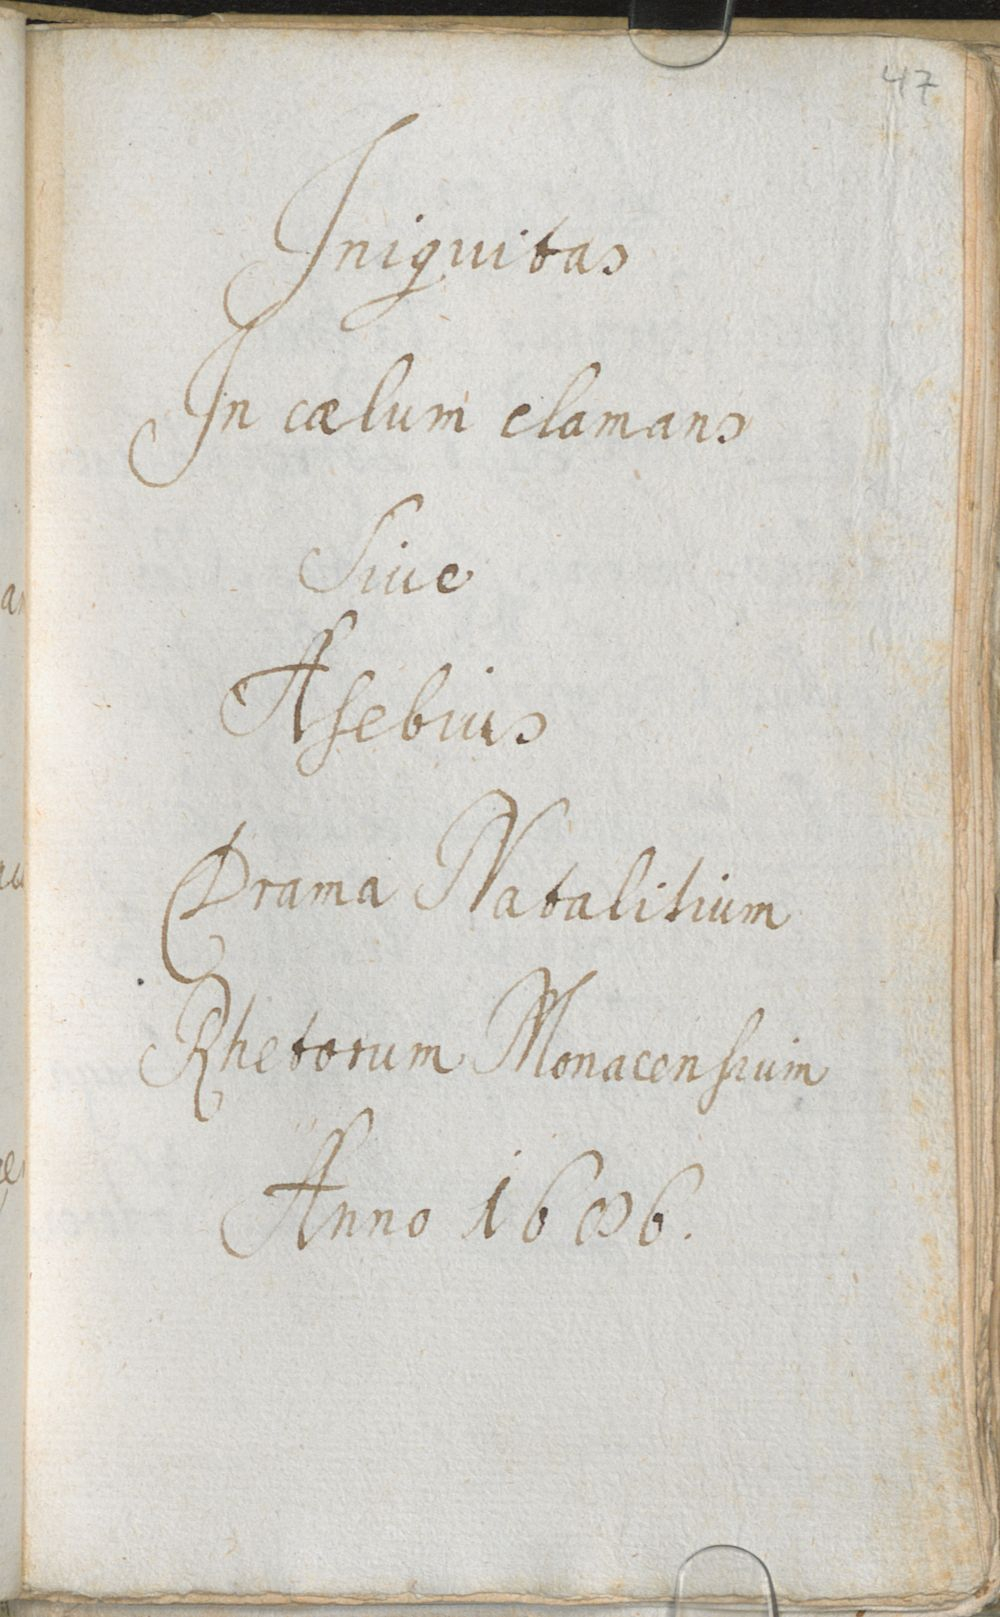 47
Iniquitas
In cælum clamans
Siue
Asebius
Drama Natalitium
Rhetorum Monacensium
Anno 1686.